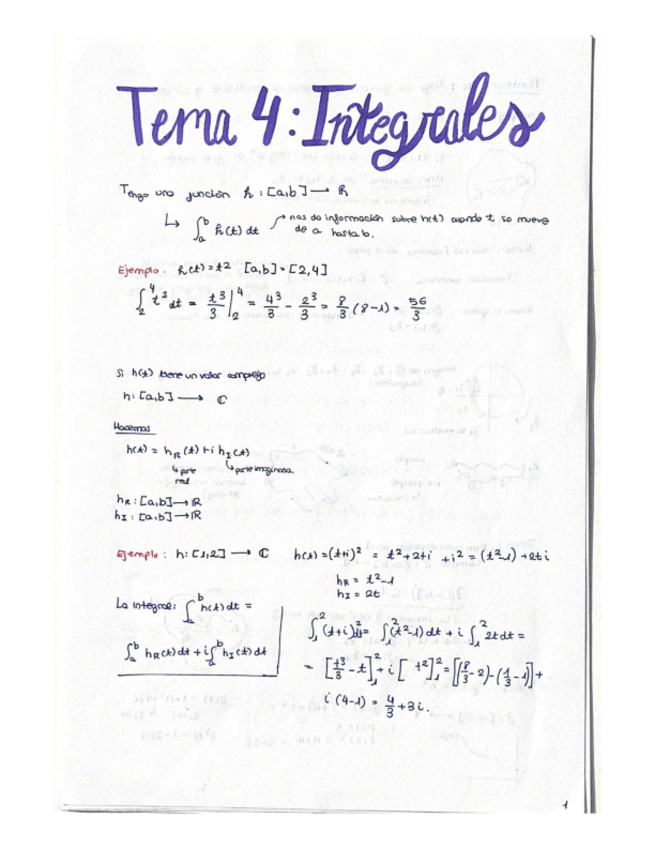 Tema 4: Integrales
Tengo una función h: [a,b] → ℝ
↳ ∫_a^b h(t) dt ↗ nos da información sobre h(t) cuando t, se mueve
de a hasta b.
Ejemplo: h(t) = t² [a,b] = [2,4]
∫_2^4 t² dt = t³/3 |_2^4 = 4³/3 - 2³/3 = 8/3 (8-1) = 56/3
Si h(t) tiene un valor complejo
h: [a,b] → ℂ
Hacemos
h(t) = h_R(t) + i h_I(t)
↳ parte real ↳ parte imaginaria.
h_R: [a,b] → ℝ
h_I: [a,b] → ℝ
Ejemplo: h: [1,2] → ℂ h(t) = (t+i)² = t² + 2ti + i² = (t²-1) + 2ti
h_R = t²-1
h_I = 2t
La integral: ∫_a^b h(t) dt =
∫_a^b h_R(t) dt + i ∫_a^b h_I(t) dt
∫_1^2 (t+i)² dt = ∫_1^2 (t²-1) dt + i ∫_1^2 2t dt =
= [t³/3 - t]_1^2 + i [t²]_1^2 = [(8/3 - 2) - (1/3 - 1)] +
i (4-1) = 4/3 + 3i.
1